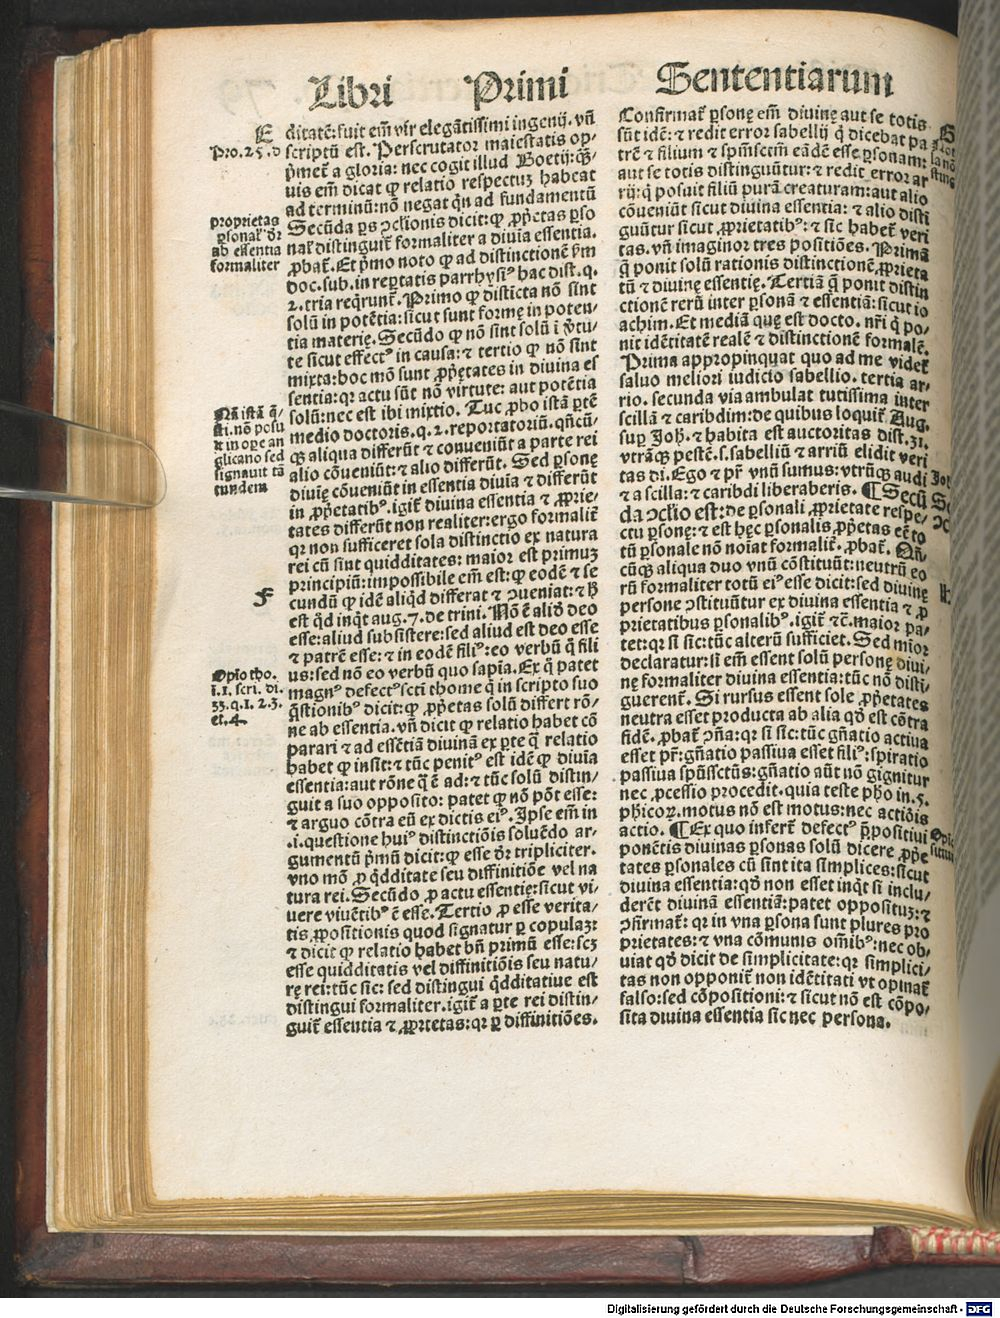 Libri Primi Sententiarum
E
Pro.25.d
proprietas
psonal' dr
ab essentia
formaliter
Nā istā q̄/
sti. nō posu
it in ope an
glicano sed
signauit tā
tundem
F
Opīo tho.
ī.1. scri. di.
33.q.1. 2.3.
et.4.
ditatē: fuit em̄ vir elegātissimi ingenij. vn̄
scriptū est. Perscrutator maiestatis op-
p̄met̄ a gloria: nec cogit illud Boetij: q̄ꝫ/
uis em̄ dicat ꝙ relatio respectuꝫ habeat
ad terminū: nō negat qn̄ ad fundamentū
Secūda ps ↄclionis dicit: ꝙ ꝓp̄etas pso
nal' distinguit̄ formaliter a diuīa essentia.
ꝓbat̄. Et p̄mo noto ꝙ ad distinctionē ꝟm
doc. sub. in reptatis parrhysiꝰ hac dist. q.
2. tria req̄runt̄. Primo ꝙ disticta nō sint
solū in potētia: sicut sunt formę in poten-
tia materię. Secūdo ꝙ nō sint solū ī ꝟtu-
te sicut effectꝰ in causa: ⁊ tertio ꝙ nō sint
mixta: hoc mō sunt ꝓp̄etates in diuina es
sentia: qꝛ actu sūt nō virtute: aut potētia
solū: nec est ibi mixtio. Tūc ꝓbo istā ptē
medio doctoris. q. 2. reportatoriū. qn̄cū/
qꝫ aliqua differūt ⁊ conueniūt a parte rei
alio cōueniūt: ⁊ alio differūt. Sed psonę
diuię cōueniūt in essentia diuīa ⁊ differūt
in ꝓp̄etatibꝰ. igit̄ diuina essentia ⁊ ꝓprie/
tates differūt non realiter: ergo formalit̄
qꝛ non sufficeret sola distinctio ex natura
rei cū sint quidditates: maior est primuꝫ
principiū: impossibile em̄ est: ꝙ eodē ⁊ se
cundū ꝙ idē aliqd differat ⁊ ↄueniat: ⁊ ħ
est qd inqt aug. 7. de trini. Nō ē aliđ deo
esse: aliud subsistere: sed aliud est deo esse
⁊ patrē esse: ⁊ in eodē filiꝰ: eo verbū q̄ fili
us: sed nō eo verbū quo sapīa. Ex q̄ patet
magnꝰ defectꝰ scti thome q̄ in scripto suo
q̄stionibꝰ dicit: ꝙ ꝓp̄etas solū differt rō/
ne ab essentia. vn̄ dicit ꝙ relatio habet cō
parari ⁊ ad essētiā diuinā ex pte q̄ relatio
habet ꝙ insit: ⁊ tūc penitꝰ est idē ꝙ diuīa
essentia: aut rōne q̄ ē ad: ⁊ tūc solū distin/
guit a suo opposito: patet ꝙ nō pōt esse:
⁊ arguo cōtra eū ex dictis eiꝰ. Ipse em̄ in
.i. questione huiꝰ distinctiōis soluēdo ar/
gumentū p̄mū dicit: ꝙ esse dr̄ tripliciter.
vno mō ꝓ qdditate seu diffinitiōe vel na
tura rei. Secūdo ꝓ actu essentię: sicut vi/
uere viuētibꝰ ē esse. Tertio ꝓ esse verita/
tis ꝓpositionis quod signatur p copulaꝫ:
⁊ dicit ꝙ relatio habet bn̄ primū esse: scꝫ
esse quidditatis vel diffinitiōis seu natu/
rę rei: tūc sic: sed distingui qdditatiue est
distingui formaliter. igit̄ a pte rei distin/
guit̄ essentia ⁊ ꝓprietas: qꝛ p diffinitiōes.
Confirmat̄ psonę em̄ diuinę aut se totis
sūt idē: ⁊ redit error sabellij q̄ dicebat pa
trē ⁊ filium ⁊ spm̄sctm̄ eādē esse psonam:
aut se totis distinguūtur: ⁊ redit error ar
rij: q̄ posuit filiū purā creaturam: aut alio
cōueniūt sicut diuina essentia: ⁊ alio disti
guūtur sicut ꝓprietatibꝰ: ⁊ sic habet̄ veri
tas. vn̄ imaginor tres positiōes. Primā
q̄ ponit solū rationis distinctionē ꝓprieta
tū ⁊ diuinę essentię. Tertiā q̄ ponit distin
ctionē rerū inter psonā ⁊ essentiā: sicut io
achim. Et mediā quę est docto. nr̄i q̄ po/
nit idētitatē realē ⁊ distinctionē formalē.
Prima appropinquat quo ad me videt̄
saluo meliori iudicio sabellio. tertia ar/
rio. secunda via ambulat tutissima inter
scillā ⁊ caribdim: de quibus loquit̄ Aug.
sup Joh. ⁊ habita est auctoritas dist. 31.
vtrāqꝫ pestē. s. sabelliū ⁊ arriū elidit veri
tas di. Ego ⁊ pr̄ vnū sumus: vtrūqꝫ audi
⁊ a scilla: ⁊ caribdi liberaberis. ¶ Secū
da ↄclio est: de psonali ꝓprietate respe/
ctu psonę: ⁊ est hęc psonalis ꝓp̄etas ec̄ to
tū psonale nō noīat formalit̄. ꝓbat̄. Qn̄
cūqꝫ aliqua duo vnū cōstituūt: neutrū eo
rū formaliter totū eiꝰ esse dicit: sed diuinę
persone ↄstituūtur ex diuina essentia ⁊ ꝓ
prietatibus psonalibꝰ. igit̄ ⁊c̄. maior pa/
tet: qꝛ si sic: tūc alterū sufficiet. Sed mīor
declaratur: si em̄ essent solū personę diui/
nę formaliter diuina essentia: tūc nō disti/
guerent̄. Si rursus essent sole ꝓp̄etates
neutra esset producta ab alia qđ est cōtra
fidē. ꝓbat̄ ↄn̄a: qꝛ si sic: tūc gn̄atio actiua
esset pr̄: gn̄atio passiua esset filiꝰ: spiratio
passiua spūssctūs: gn̄atio aūt nō gignitur
nec ꝓcessio procedit. quia teste pho in. 5.
phicoꝝ. motus nō est motus: nec actiōis
actio. ¶ Ex quo infert̄ defectꝰ p̄positiui
ponētis diuinas psonas solū dicere ꝓp̄e
tates psonales cū sint ita simplices: sicut
diuina essentia: qđ non esset inqt si inclu/
derēt diuinā essentiā: patet oppositū: ⁊
ↄfirmat̄: qꝛ in vna psona sunt plures pro
prietates: ⁊ vna cōmunis om̄ibꝰ: nec ob/
uiat qđ dicit de simplicitate: qꝛ simplici/
tas non opponit̄ non idētitati vt opinat̄
falso: sed cōpositioni: ⁊ sicut nō est cōpo/
sita diuina essentia sic nec persona.
Digitalisierung gefördert durch die Deutsche Forschungsgemeinschaft - DFG